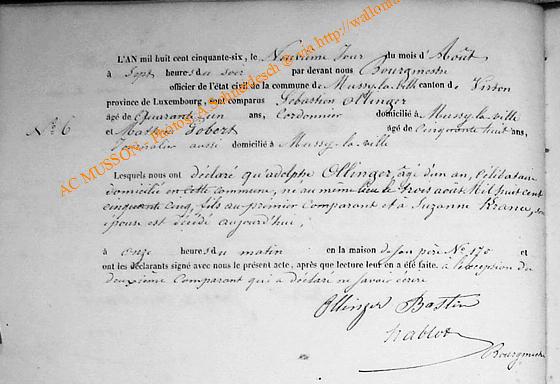 L'AN mil huit cent cinquante-six, le Neuvieme Jour du mois d'Août
à Sept heures du soir par devant nous Bourgmestre
officier de l'état civil de la commune de Mussy-la-ville canton de Virton
province de Luxembourg, sont comparus Sébastien Ollinger
âgé de Quarante un ans, Cordonnier domicilié à Mussy-la-ville
N° 6 et Gobert âgé de Cinquante huit ans,
Journalier aussi domicilié à Mussy-la-ville
Lesquels nous ont déclaré qu'adolphe Ollinger, âgé d'un an, Célibataire
domicilié en cette commune, né au même lieu le trois août Mil huit cent
cinquante cinq, fils au premier Comparant et à Suzanne Franc, son
épouse est décédé aujourd'hui,
à onze heures du matin en la maison de son père N° 170 et
ont les déclarants signé avec nous le présent acte, après que lecture leur en a été faite. à l'exception du
deuxième Comparant qui a déclaré ne savoir écrire
Ollinger Bastin
Bourgmestre
AC MUSSON. Photos: A. Schneidesch @ via http://wallonia